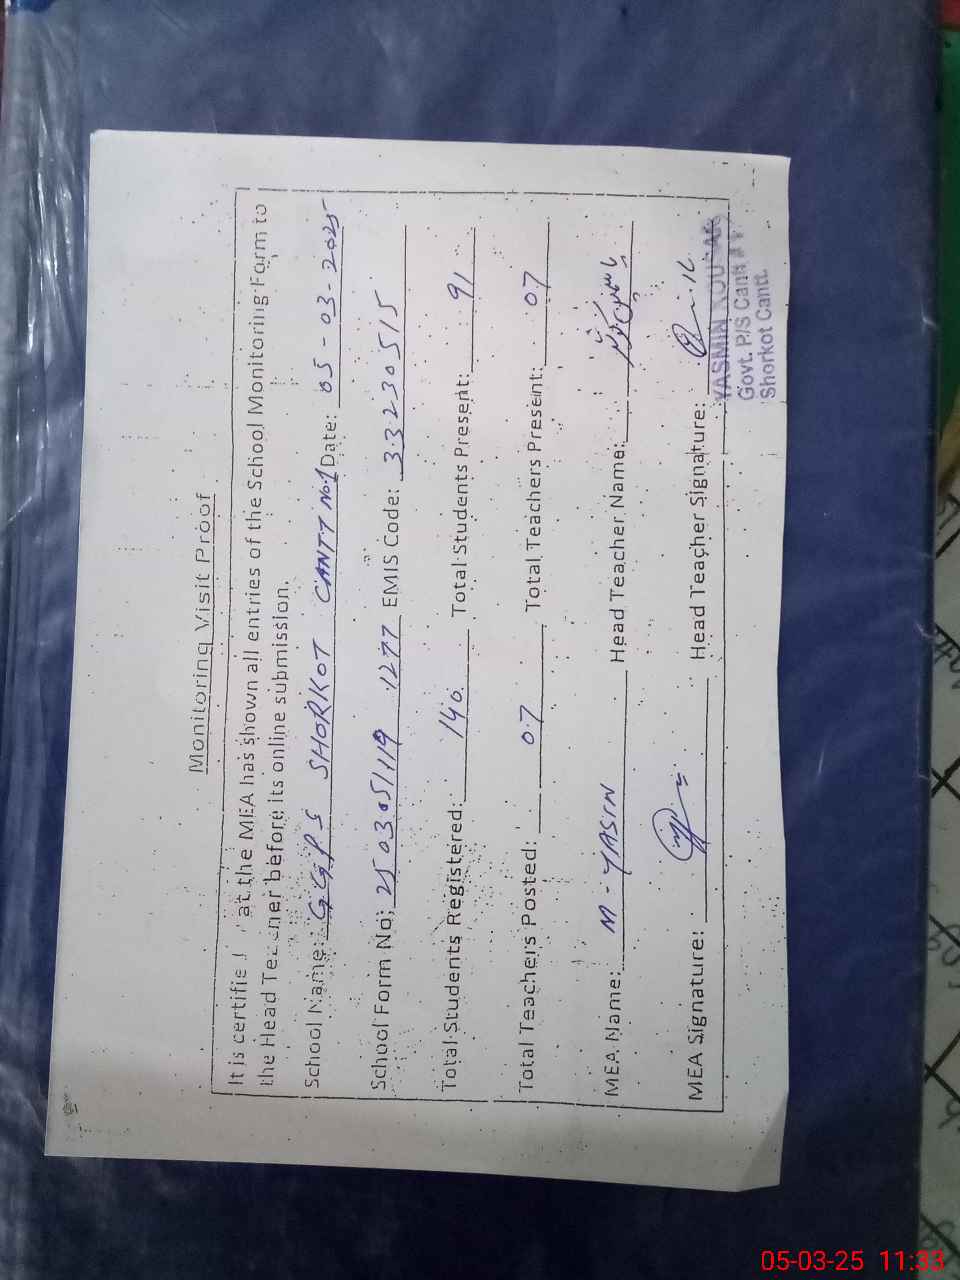 Monitoring Visit Proof
It is certifie at the MEA has shown all entries of the School Monitoring Form to
the Head Teacher before its online submission.
School Name: GGPS SHORKOT CANTT No.1 Date: 05-03-2025
School Form No: 2503051119 1277 EMIS Code: 33230515
Total Students Registered: 140 Total Students Present: 91
Total Teachers Posted: 07 Total Teachers Present: 07
MEA Name: M-YASIN Head Teacher Name:
MEA Signature: Head Teacher Signature:
YASMIN KOUSAR
Govt. P/S Cantt
Shorkot Cantt.
05-03-25 11:33